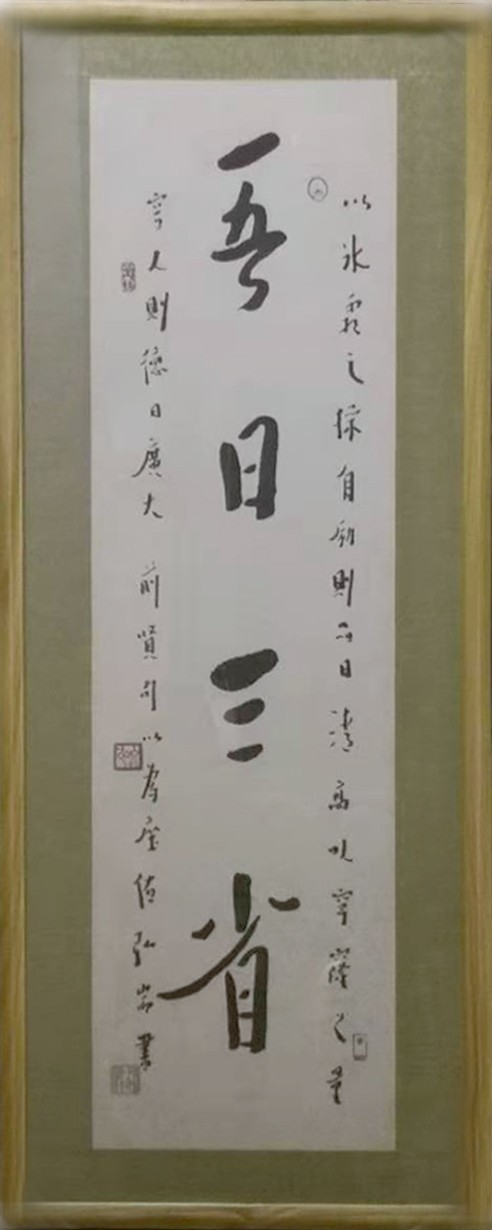 以冰霜之操自励則品日清高以穹窿之量
吾日三省
容人則德日廣大 前賢句以為座弘書